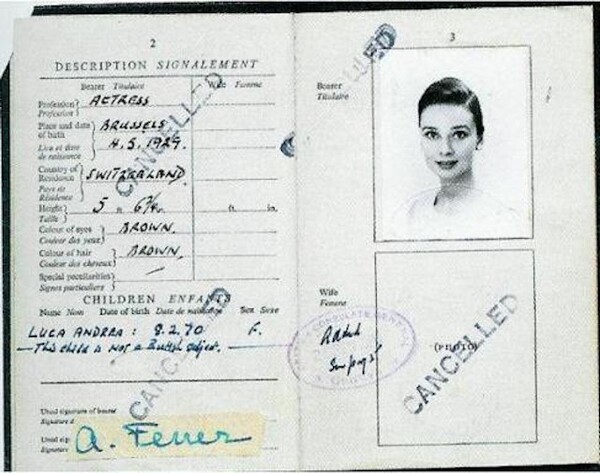 2
DESCRIPTION SIGNALEMENT
Bearer Titulaire
Wife Femme
Profession
Profession
ACTRESS
Place and date
of birth
BRUSSELS
Lieu et date
de naissance
4.5.1929.
Country of
Residence
SWITZERLAND
Pays de
Résidence
Height
Taille
5
ft. in.
Colour of eyes
Couleur des yeux
BROWN.
Colour of hair
Couleur des cheveux
BROWN.
Special peculiarities
Signes particuliers
CANCELLED
CHILDREN ENFANTS
Name Nom Date of birth Date de naissance Sex Sexe
LUCA ANDREA : 8.2.70 F.
This child is not a British subject.
CANCELLED
Usual signature of bearer
Signature d
Usual sig
Signature
A. Ferrer
3
Bearer
Titulaire
Wife
Femme
CONSULATE GENERAL
(PHOTO)
CANCELLED